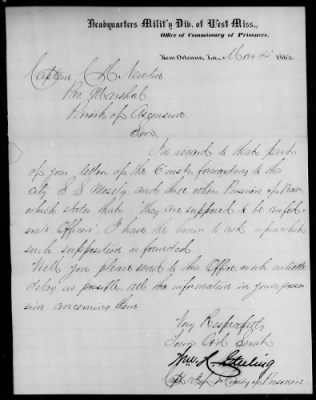 Headquarters Milit'y Div. of West Miss.,
Office of Commissary of Prisoners.
New Orleans, La., Mar 14 1865.
Captain C. H. Newton
Pro. Marshal
Parish of Ascension
Sir
In regard to that part
of your letter of the 6" inst. forwarding to this
city S. S. Mosely, and three other Prisoners of War
which states that "They are supposed to be confed-
erate Officers". I have the honor to ask upon what
such supposition is founded.
Will you please send to this Office, with as little
delay as possible, all the information in your posses-
sion concerning them
Very Respectfully
Your Obt. Servt
Wm. H. Sterling
Capt &
of Prisoners